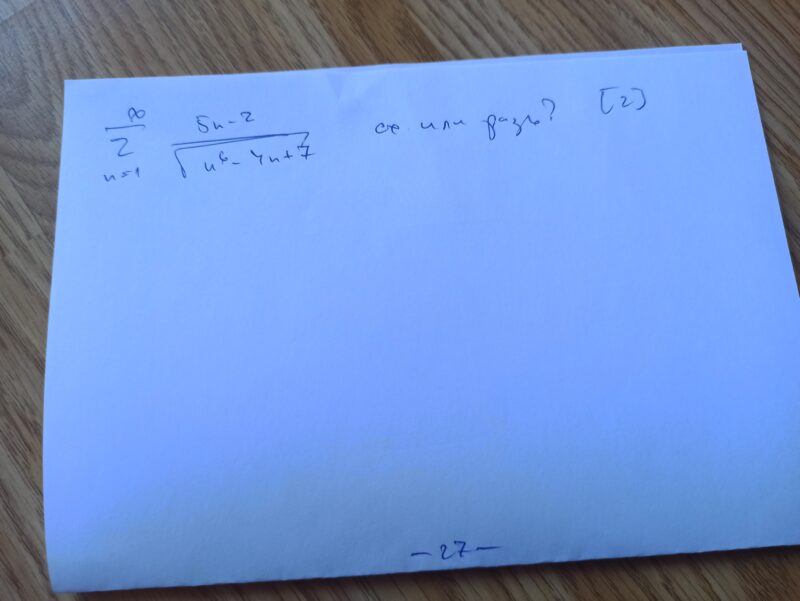 ∞
∑ (5n-2)/√(n⁶-4n+7) сх. или разх? [2]
n=1
-27-